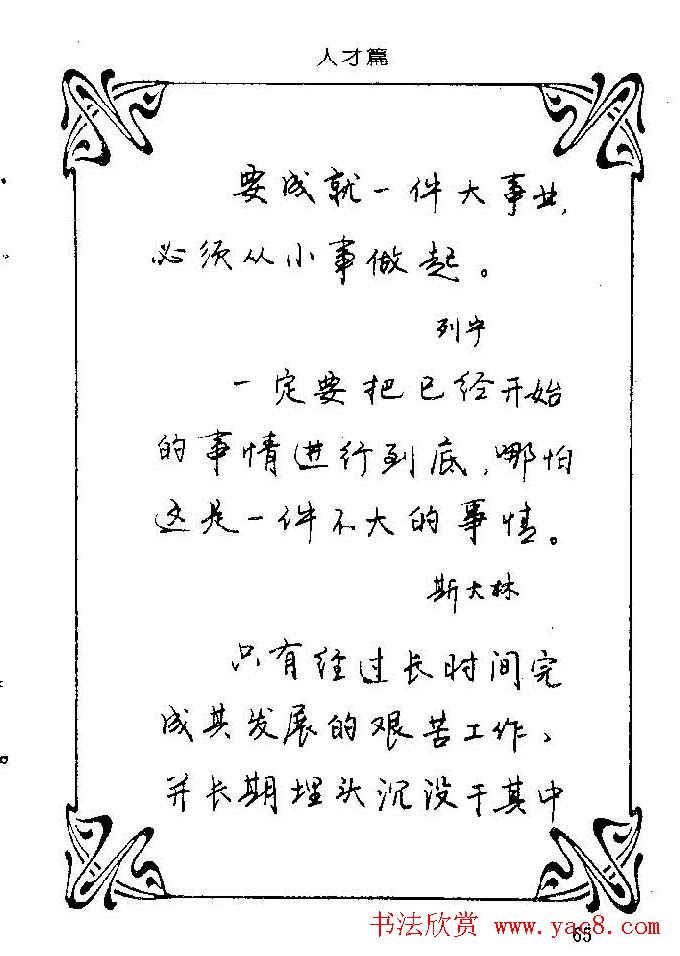 人才篇
要成就一件大事业,
必须从小事做起。
列宁
一定要把已经开始
的事情进行到底,哪怕
这是一件不大的事情。
斯大林
只有经过长时间完
成其发展的艰苦工作、
并长期埋头沉没于其中
书法欣赏 www.yac8.com
65